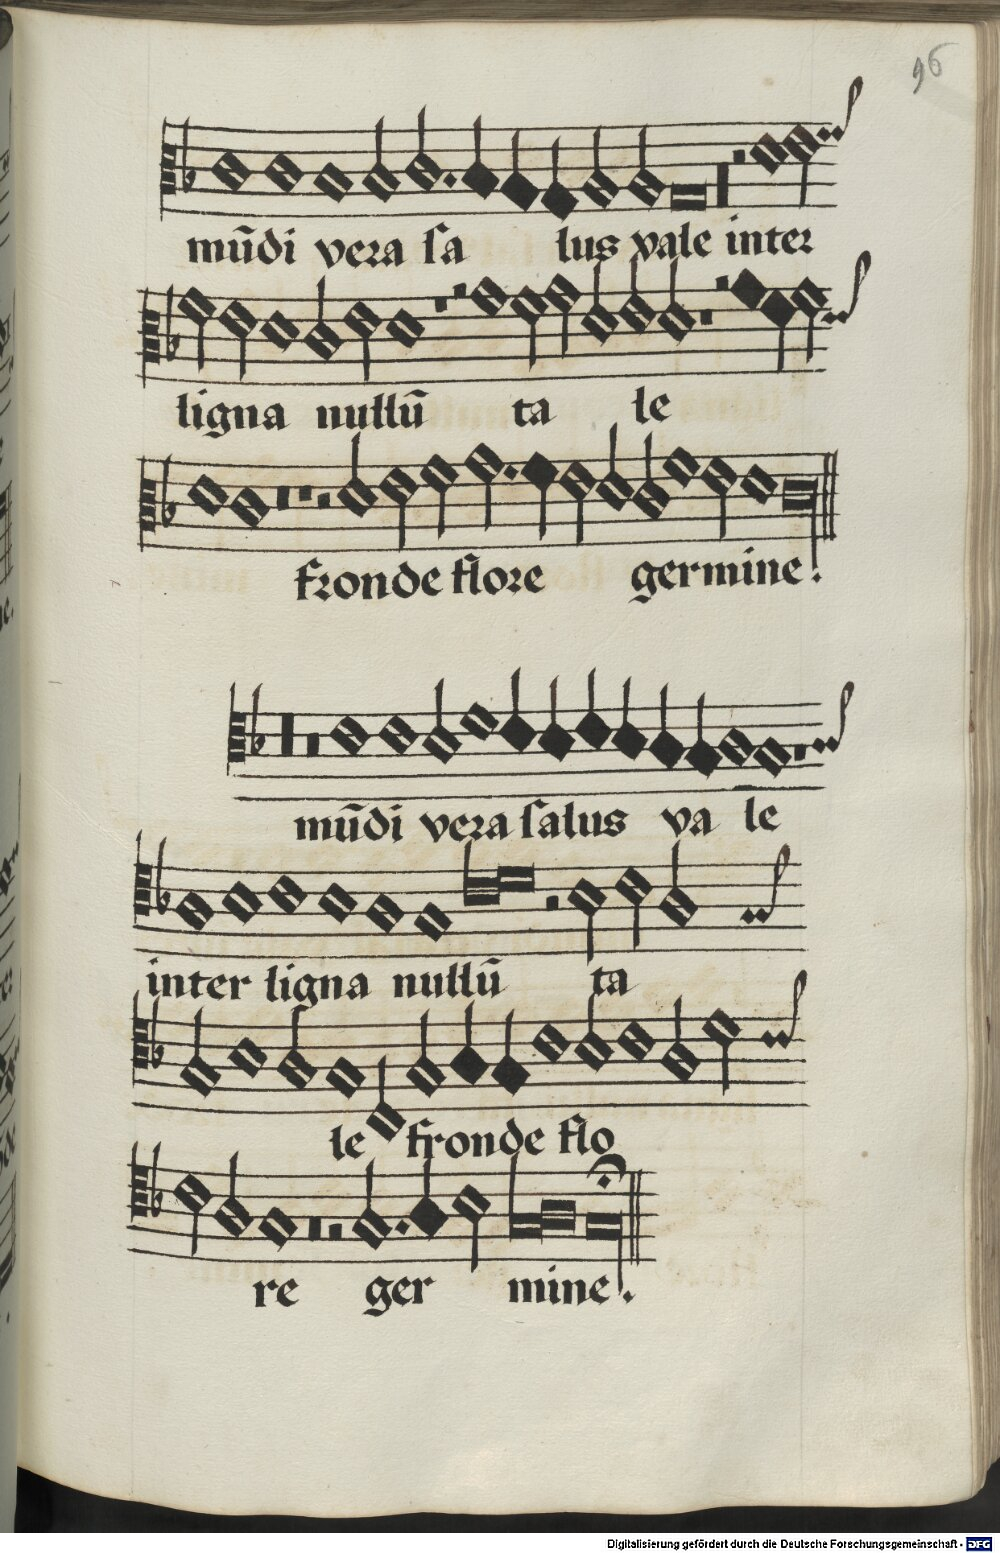 96
mūdi vera sa lus vale inter
ligna nullū ta le
fronde flore germine.
mūdi vera salus va le
inter ligna nullū ta
le fronde flo
re ger mine.
Digitalisierung gefördert durch die Deutsche Forschungsgemeinschaft - DFG